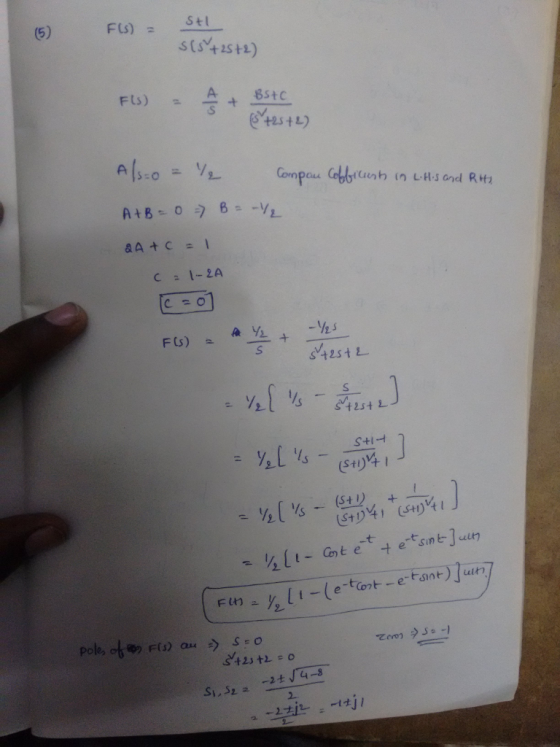 (5) F(s) = s+1 / s(s²+2s+2)
F(s) = A/s + Bs+C / (s²+2s+2)
A|s=0 = 1/2 Compare Cofficients in L.H.S and R.H.S
A+B = 0 ⇒ B = -1/2
2A + C = 1
C = 1-2A
C = 0
F(s) = 1/2 / s + -1/2 s / s²+2s+2
= 1/2 [ 1/s - s / s²+2s+2 ]
= 1/2 [ 1/s - s+1-1 / (s+1)²+1 ]
= 1/2 [ 1/s - (s+1) / (s+1)²+1 + 1 / (s+1)²+1 ]
= 1/2 [ 1 - Cost e^-t + e^-t sint ] u(t)
F(t) = 1/2 [ 1 - (e^-t cost - e^-t sint) ] u(t)
Poles of F(s) are ⇒ s = 0 zeros ⇒ s = -1
s²+2s+2 = 0
S1, S2 = -2 ± √4-8 / 2
= -2 ± j2 / 2 = -1 ± j1